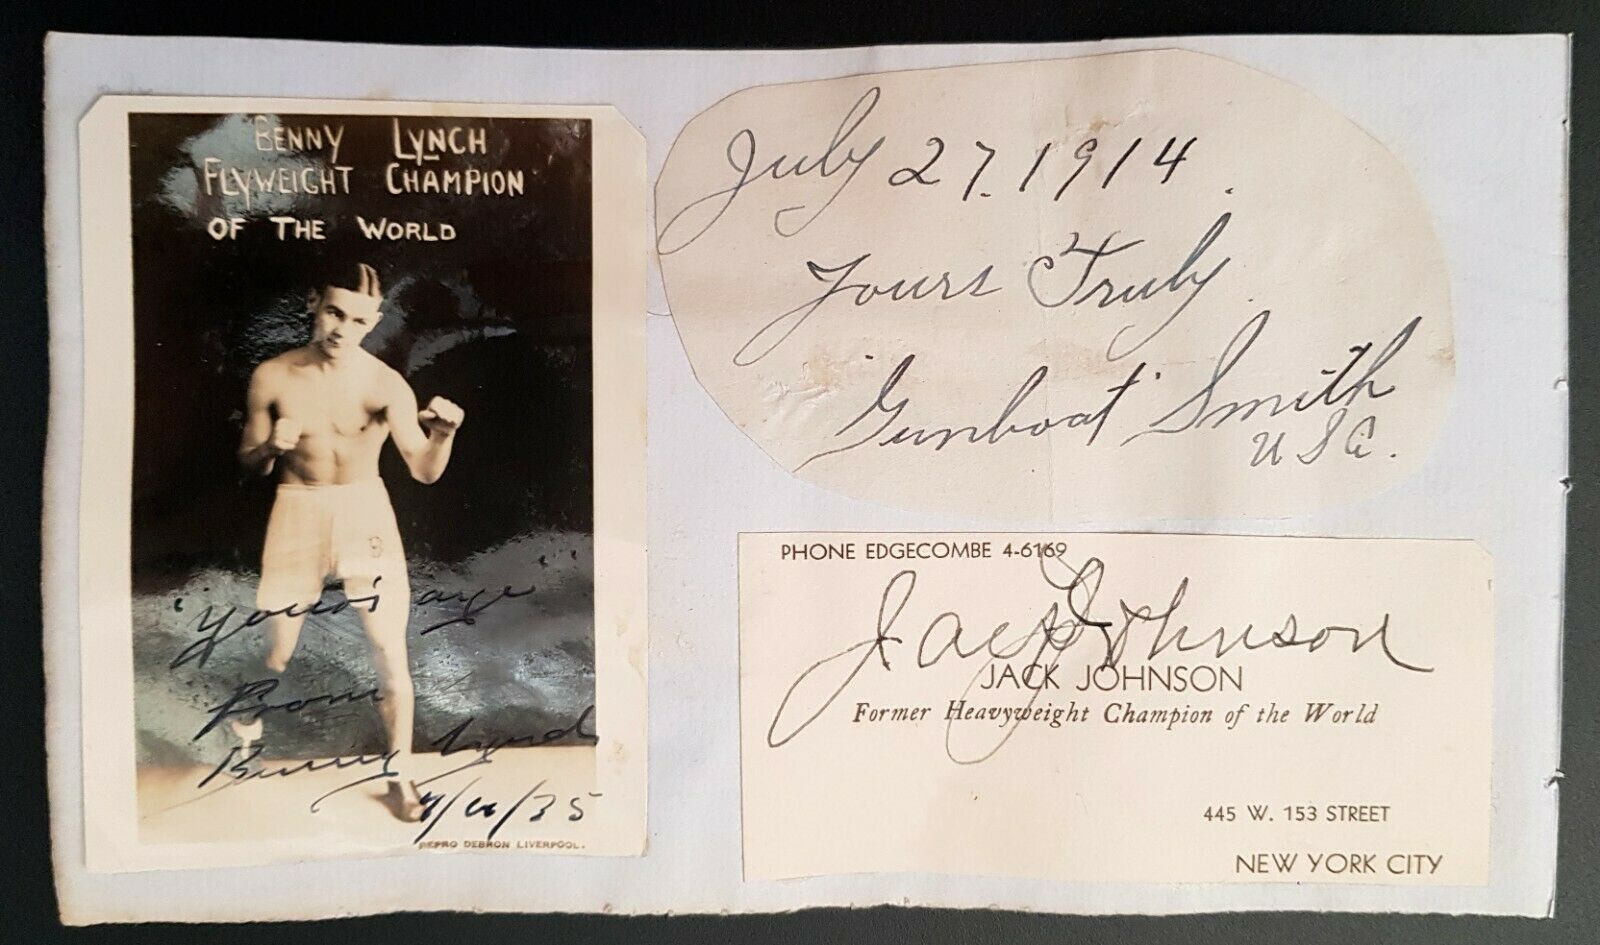 BENNY LYNCH
FLYWEIGHT CHAMPION
OF THE WORLD
Yours aye
From
Benny Lynch
/35
REPRO DEBRON LIVERPOOL.
July 27. 1914.
Yours Truly.
"Gunboat" Smith
U S A.
PHONE EDGECOMBE 4-6169
Jack Johnson
JACK JOHNSON
Former Heavyweight Champion of the World
445 W. 153 STREET
NEW YORK CITY